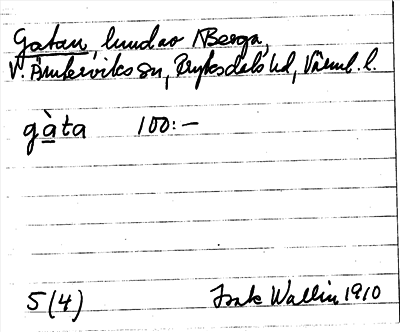 Gatan, lund av NBerga,
V. Ämterviks sn, Fryksdals hd, Värml. l.
gàta 100:-
5(4) Isak Wallin 1910